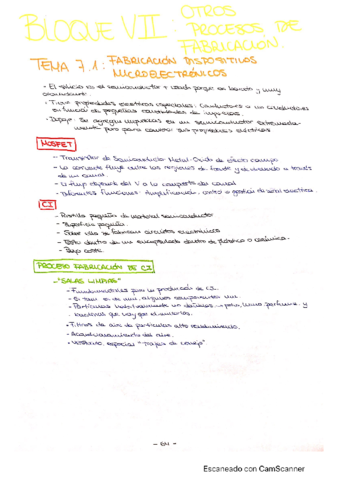 OTROS
BLOQUE VII: PROCESOS DE
FABRICACIÓN.
TEMA 7.1: FABRICACIÓN DISPOSITIVOS
MICROELECTRÓNICOS
- El silicio es el semiconductor + usado porque es barato y muy
abundante.
- Tiene propiedades eléctricas especiales: Conductores o no
en función de pequeñas cantidades de impurezas.
- Dopaje: Se agregan impurezas en un semiconductor extremada-
mente puro para cambiar sus propiedades eléctricas
MOSFET
- Transistor de Semiconductor Metal-Óxido de efecto campo
- La corriente fluye entre las regiones de fuente y a través
de un canal.
- El flujo depende del V o la compuerta del canal
- Funciones: Amplificación, control o gestión de señal eléctrica.
CI
- Pastilla pequeña de material semiconductor
- Superficie pequeña
- Sobre ella se fabrican circuitos electrónicos
- Están dentro de un encapsulado de plástico o cerámica.
- Bajo coste
PROCESO FABRICACIÓN DE CI
- "SALAS LIMPIAS"
- Fundamentales para la producción de CI.
- Si
- Partículas habitualmente un : pelo, humo, perfume y
bacterias que hay por el entorno.
• Filtros de aire de partículas alto rendimiento.
• Acondicionamiento del aire.
• Vestuario especial "Trajes de conejo"
- 64 -
Escaneado con CamScanner